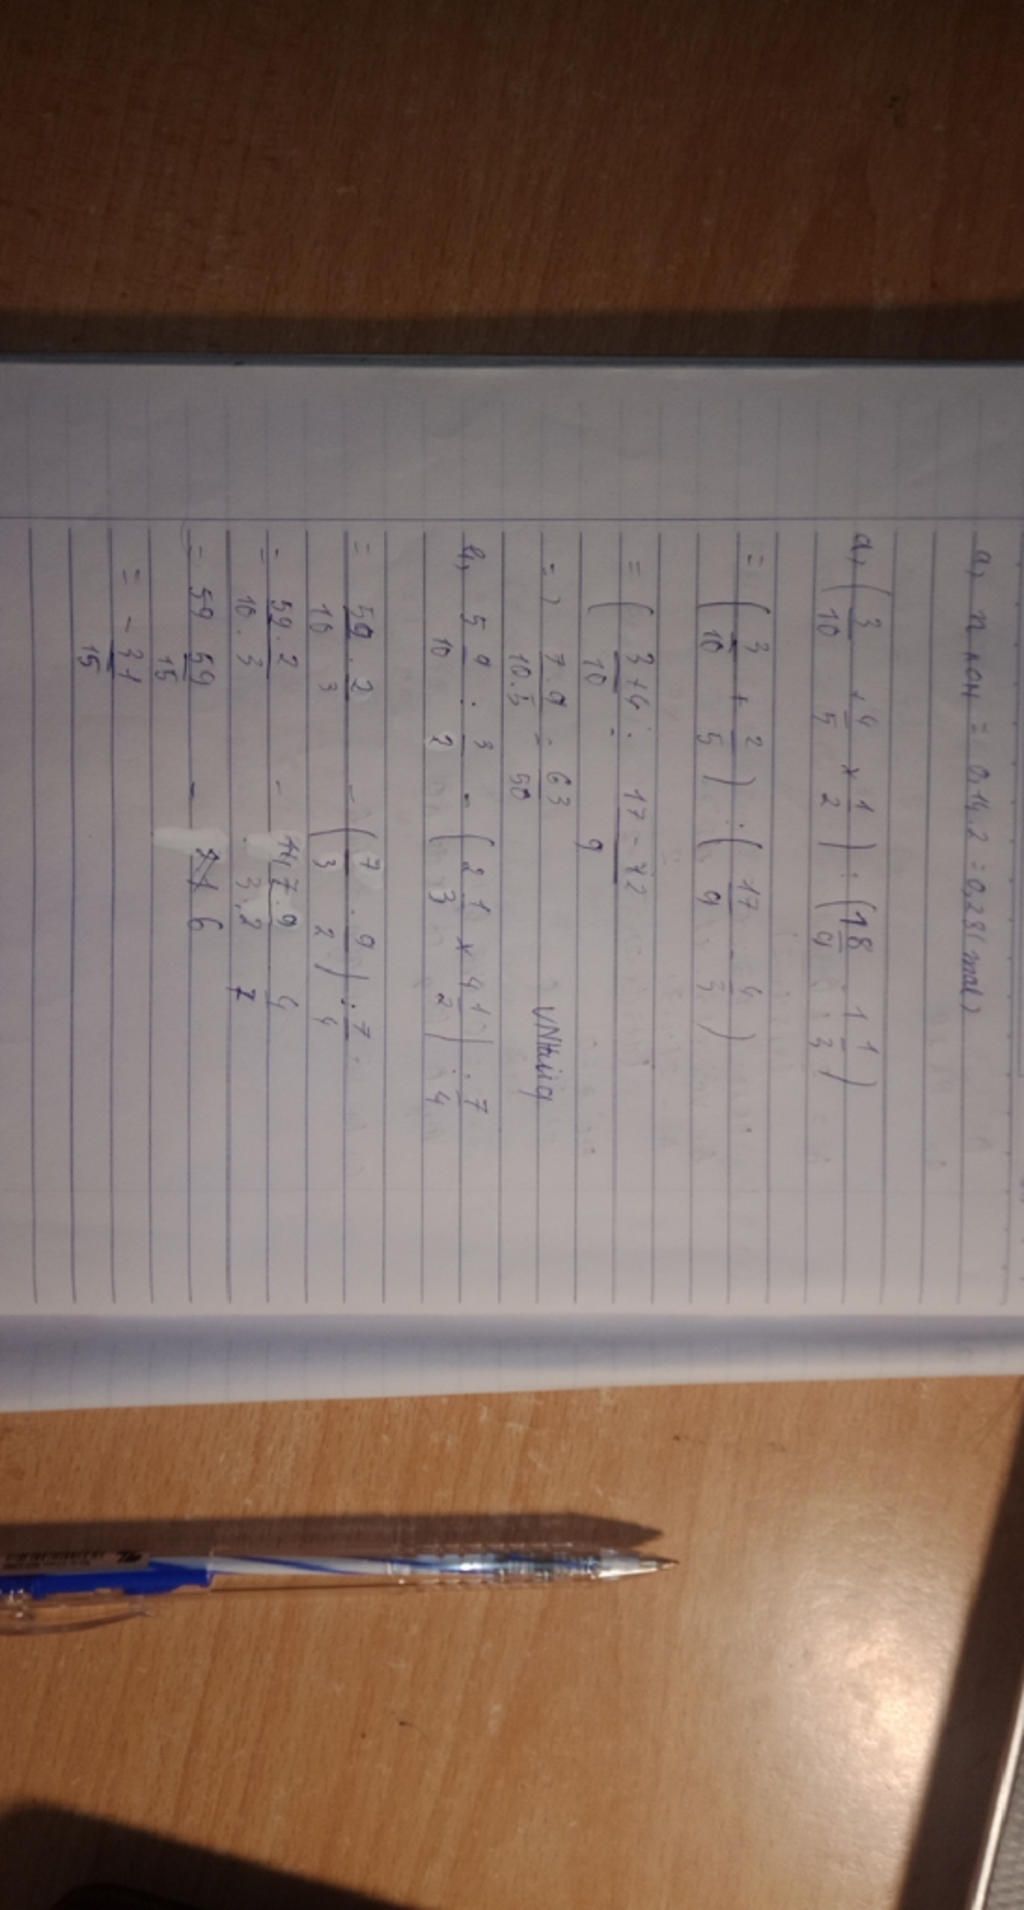 a, n KOH = 0,14.2 = 0,28 (mol)
a, (3/10 + 4/5 x 1/2) : (1 8/9 - 1 1/3)
= (3/10 + 2/5) : (17/9 - 4/3)
= (3+4/10 : 17-12/9
= 7.9/10.5 = 63/50
VNHuiq
b, 5 9/10 : 3/2 - (2 1/3 x 4 1/2) : 7/4
= 59/10 . 2/3 - (7/3 . 9/2) : 7/4
= 59.2/10.3 - 7.9/3.2 . 4/7
= 59 59/15 - 6
= - 31/15